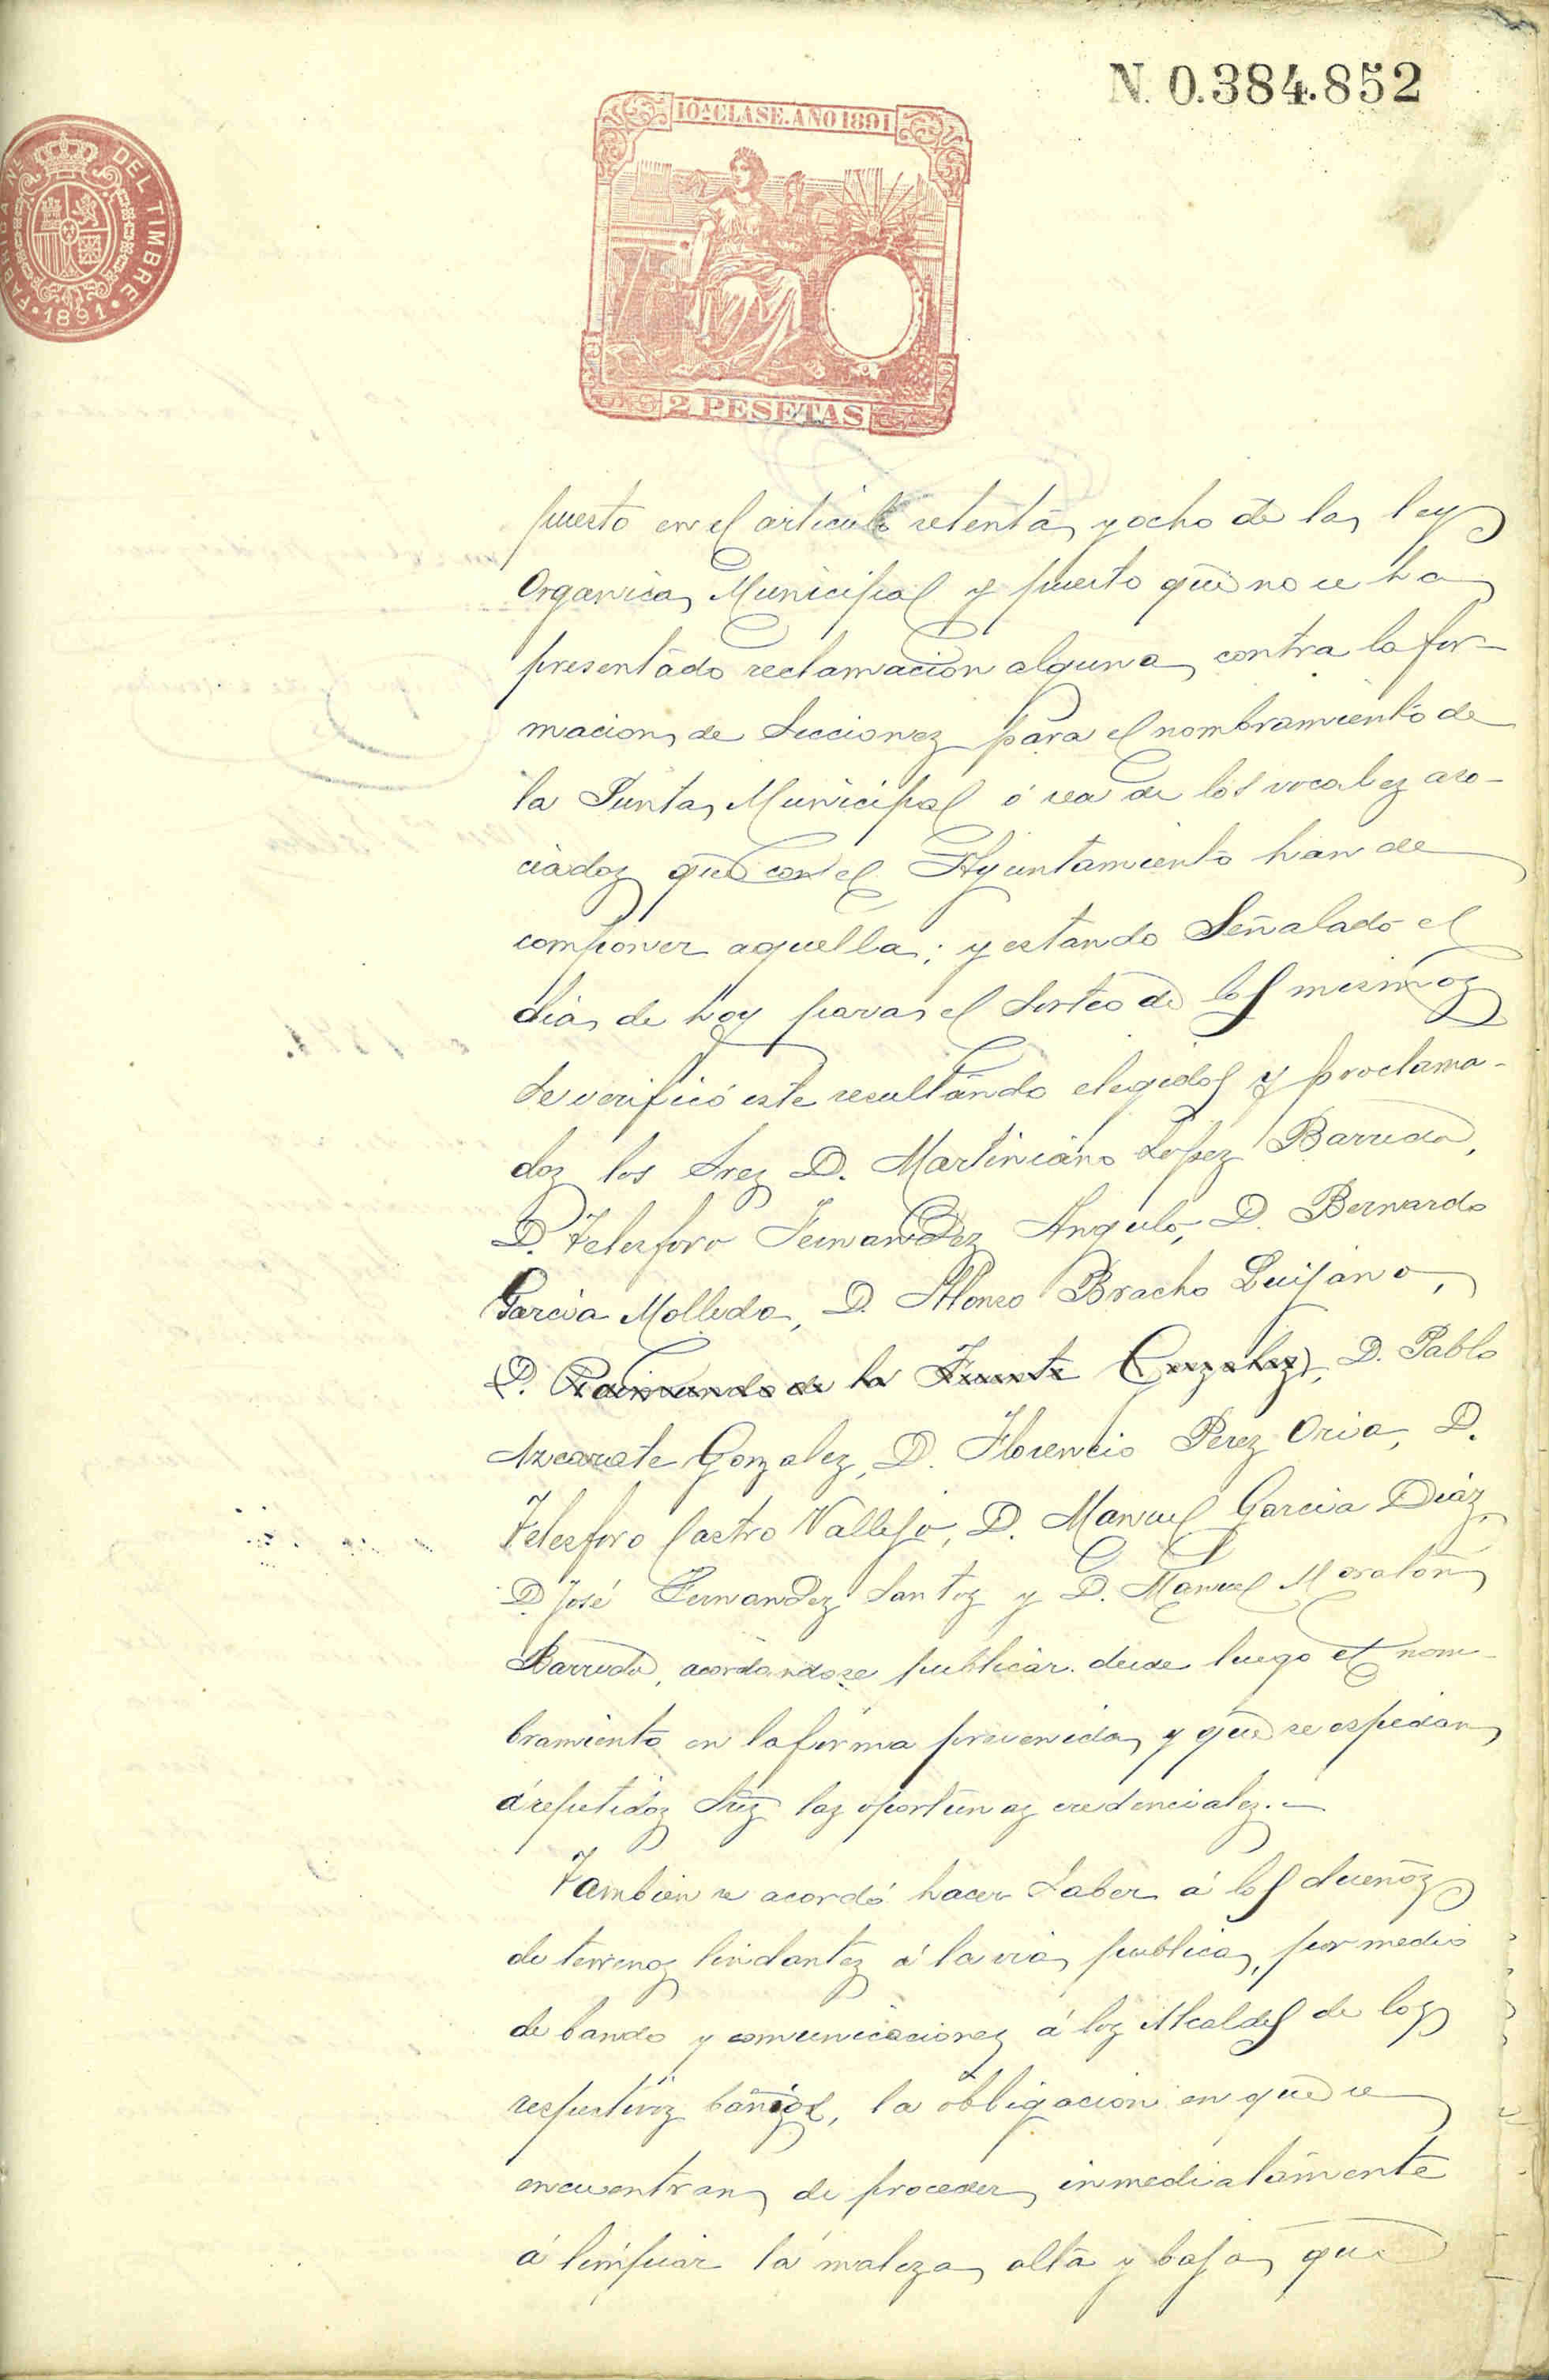 N. 0.384.852
10ª CLASE. AÑO 1891
FABRICA NL DEL TIMBRE
1891
2 PESETAS
puesto en el articulo setenta y ocho de la ley
Organica Municipal y puesto que no se ha
presentado reclamacion alguna contra la for-
macion de Secciones para el nombramiento de
la Junta Municipal ó sea de los vocales aso-
ciados que con el Ayuntamiento han de
componer aquella; y estando Señalado el
dia de hoy para el Sorteo de los mismos
Se verificó este resultando elegidos y proclama-
dos los Sres D. Martiniano Lopez Barreda,
D. Telesforo Fernandez Angulo, D. Bernardo
Garcia Molleda, D. Alonso Bracho Quijano,
(D. Raimundo de la Fuente Gonzalez), D. Pablo
Azcarate Gonzalez, D. Florencio Perez Oria, D.
Telesforo Castro Vallejo, D. Manuel Garcia Diaz,
D. José Fernandez Santos y D. Manuel Moratón
Barreda, acordandose publicar desde luego el nom-
bramiento en la forma prevenida y que se espidan
á repetidos Sres las oportunas credenciales.
Tambien se acordó hacer Saber á los dueños
de terrenos lindantes á la via publica, por medio
de bando y comunicaciones á los Alcaldes de los
respectivos barrios, la obligacion en que se
encuentran de proceder inmediatamente
á limpiar la maleza alta y baja que